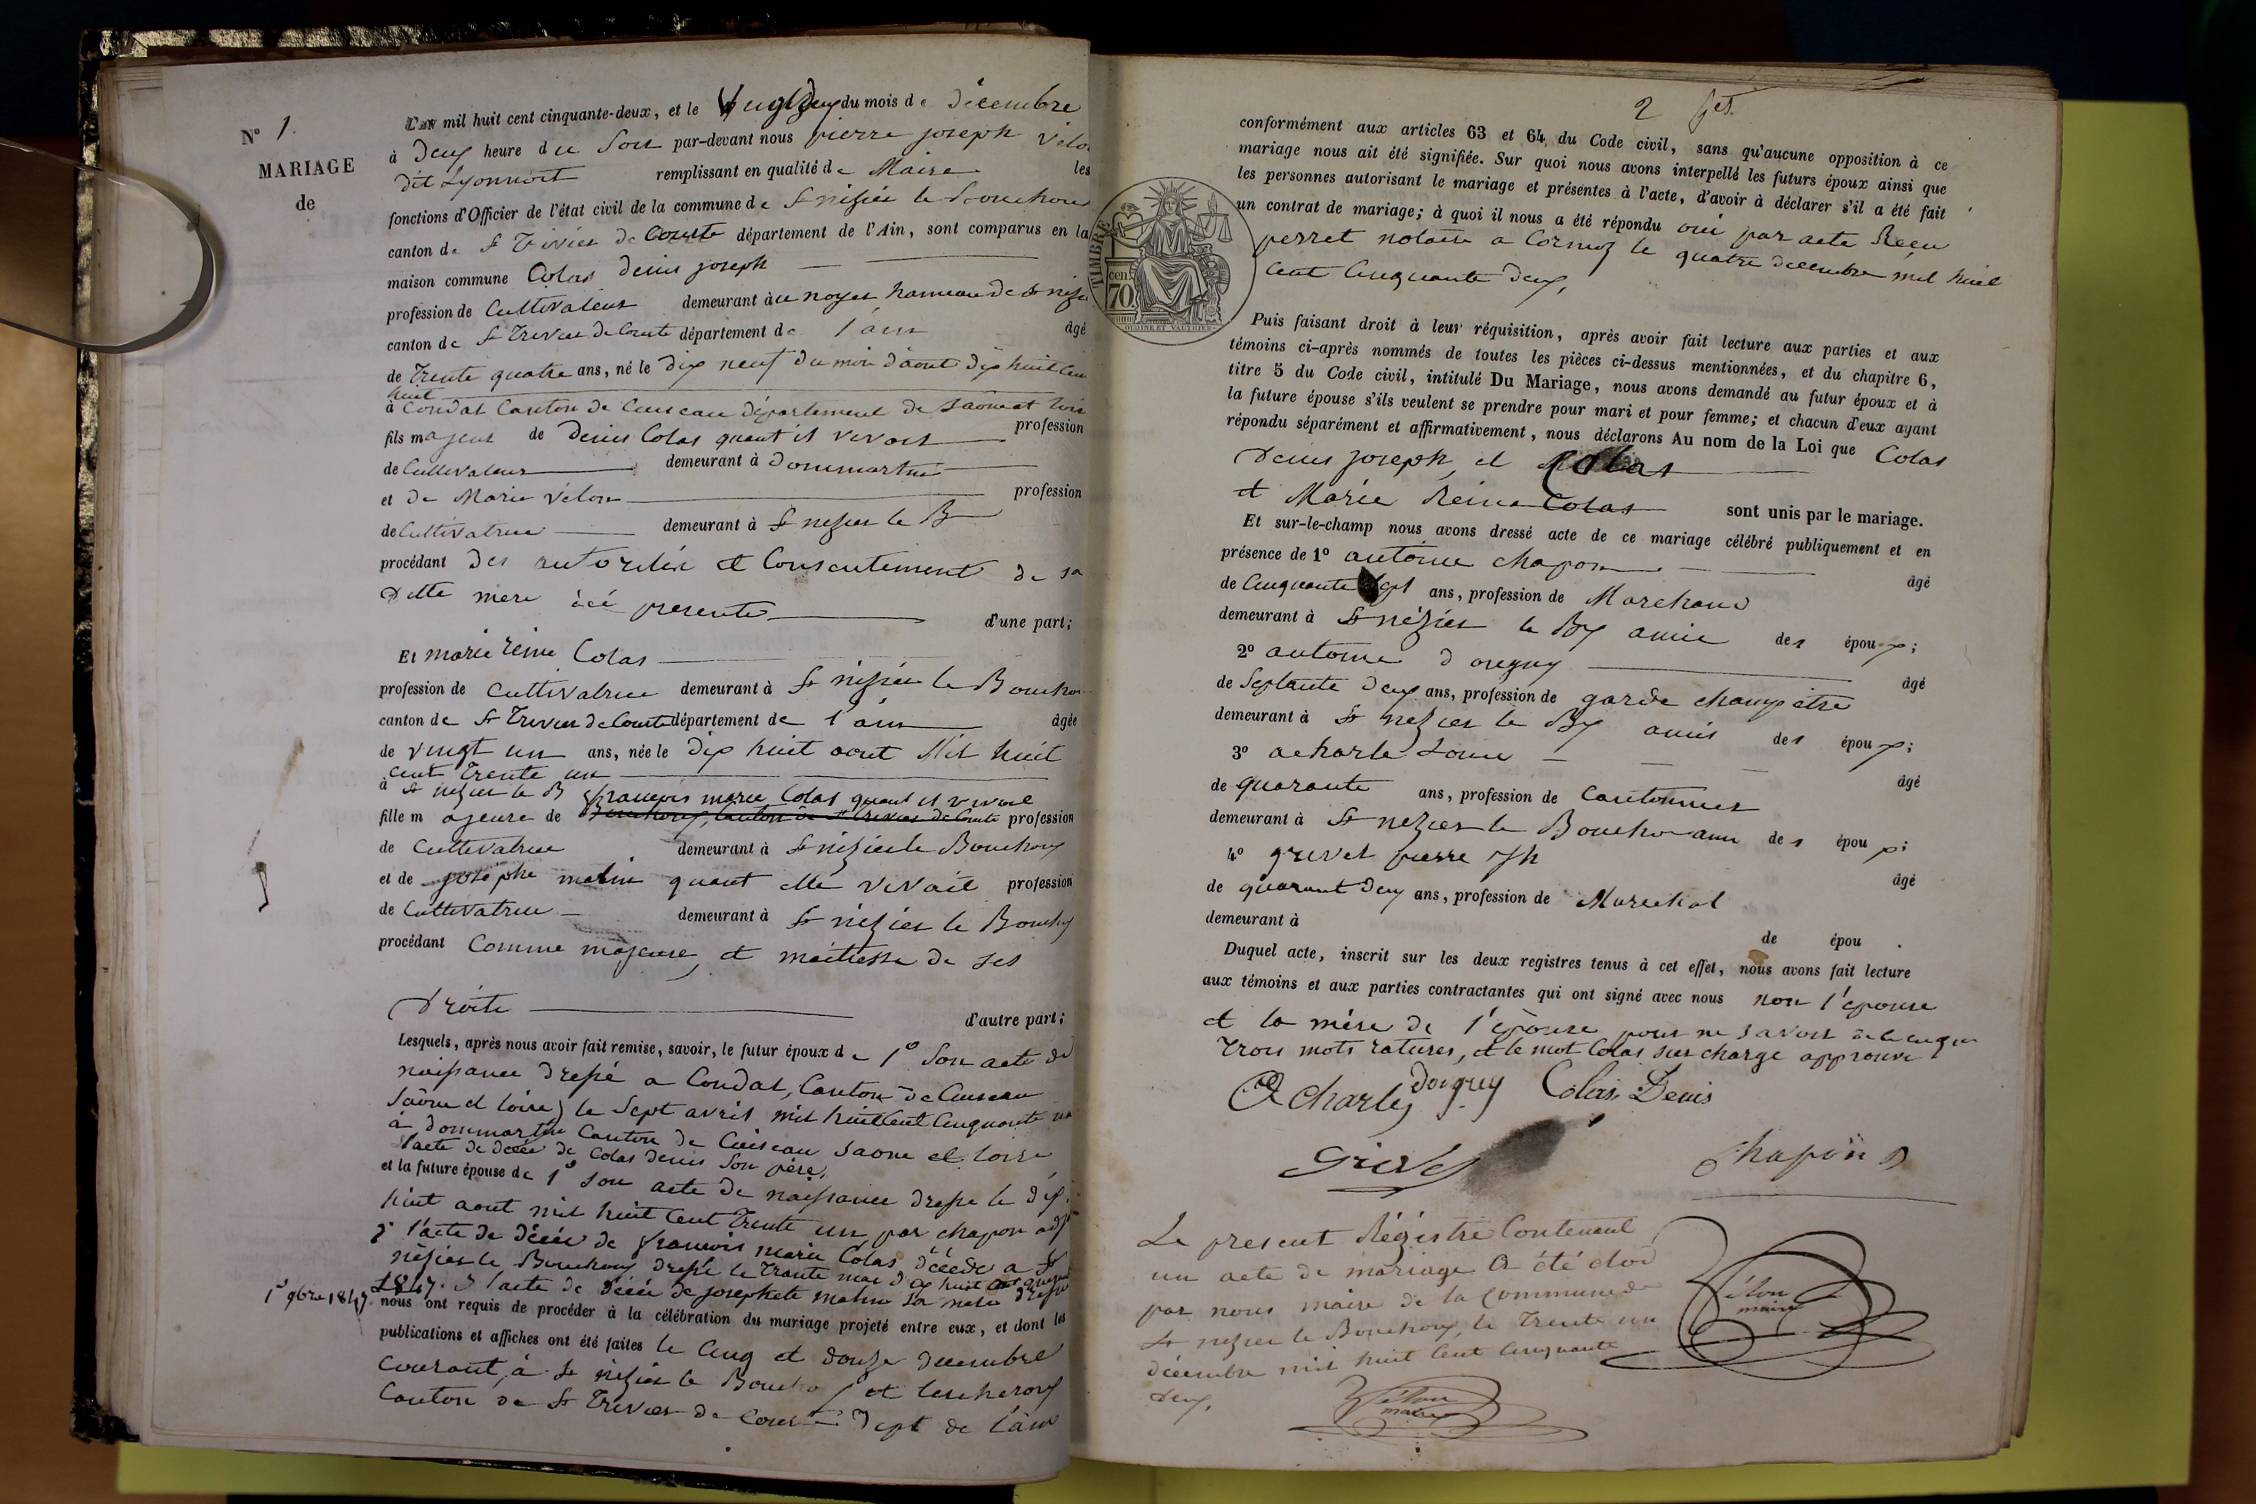 N° 1.
MARIAGE
de
L'an mil huit cent cinquante-deux, et le vingt deux du mois de décembre
à deux heure du soir par-devant nous pierre joseph vélon
dit Lyonnoit remplissant en qualité de Maire les
fonctions d'Officier de l'état civil de la commune de St nizier le Bouchoux
canton de St Trivier de Courte département de l'Ain, sont comparus en la
maison commune Colas denis joseph
profession de Cultivateur demeurant au noyer hameau de St nizi
canton de St Trevier de Courte département de l'ain âgé
de Trente quatre ans, né le dix neuf du moi d'aout dix huit cen
huit
à Condat Canton de Cuiseau département de Saône et loir
fils majeur de denis Colas quant il vivait profession
de Cultivateur demeurant à dommartin
et de Marie vélon profession
de Cultivatrice demeurant à St nizier le B
procédant des autorités et Consentement de sa
ditte mere ici presente d'une part;
Et marie reine Colas
profession de Cultivatrice demeurant à St nizier le Bouchou
canton de St Trevier de Courte département de l'ain âgée
de vingt un ans, née le dix huit aout Mil huit
cent trente un
à St nizier le B françois marie Colas quant il vivoit
fille majeure de Bouchoux, Canton de St Trevier de Courte profession
de Cultivatrice demeurant à St nizier le Bouchoux
et de josephe matin quant elle vivait profession
de Cultivatrice demeurant à St nizier le Bouchx
procédant Comme majeure, et maitresse de ses
droits d'autre part;
Lesquels, après nous avoir fait remise, savoir, le futur époux de 1° Son acte de
naissance dressé a Condat, Canton de Cuiseau
Saône et loire) le Sept avril mil huit Cent Cinquante un
à dommartin Canton de Cuiseau Saone et loire
l'acte de décés de Colas denis Son père,
et la future épouse de 1° Son acte de naissance dressé le dix
huit aout mil huit Cent Trente un par chapon adj
2° l'acte de décés de françois marie Colas décédé a St
nézier le Bouchoux dressé le trante mai dix huit cent
1° 9bre 1847. 1847. 3 l'acte de décés de josephete matin sa mère dressé
nous ont requis de procéder à la célébration du mariage projeté entre eux, et dont les
publications et affiches ont été faites le Cinq et douze decembre
Courant, à St nizier le Bouchox et lescheroux
Canton de St Trevier de Courte Dept de l'ain
2
conformément aux articles 63 et 64 du Code civil, sans qu'aucune opposition à ce
mariage nous ait été signifiée. Sur quoi nous avons interpellé les futurs époux ainsi que
les personnes autorisant le mariage et présentes à l'acte, d'avoir à déclarer s'il a été fait
un contrat de mariage; à quoi il nous a été répondu oui par acte Reçu
perret notaire a Cormoz le quatre decembre mil huit
Cent Cinquante deux,
TIMBRE
70 cen.
OUDINÉ ET VAUTHIER
Puis faisant droit à leur réquisition, après avoir fait lecture aux parties et aux
témoins ci-après nommés de toutes les pièces ci-dessus mentionnées, et du chapitre 6,
titre 5 du Code civil, intitulé Du Mariage, nous avons demandé au futur époux et à
la future épouse s'ils veulent se prendre pour mari et pour femme; et chacun d'eux ayant
répondu séparément et affirmativement, nous déclarons Au nom de la Loi que Colas
Denis joseph, et Colas
et Marie Reine Colas sont unis par le mariage.
Et sur-le-champ nous avons dressé acte de ce mariage célébré publiquement et en
présence de 1° antoine chapon âgé
de Cinquante sept ans, profession de Marchand
demeurant à St nézier le Bx amie des époux;
2° antoine donguy âgé
de Septante deux ans, profession de garde champêtre
demeurant à St nezier le Bx amis des époux;
3° acharle Louis âgé
de quarante ans, profession de Cantonnier
demeurant à St nezier le Boucho ami des époux;
4° grivet pierre jh âgé
de quarant deux ans, profession de Marechal
demeurant à
de épou .
Duquel acte, inscrit sur les deux registres tenus à cet effet, nous avons fait lecture
aux témoins et aux parties contractantes qui ont signé avec nous non l'epouse
et la mére de l'epouse pour ne Savoir de ce enquis
trois mots raturés, et le mot Colas sur chargé approuvé
Acharles dongrey Colas Denis
Grivet chapon
Le present Régistre Contenant
un acte de mariage A été clos
par nous maire de la Commune de
St nezier le Bouchoux, le Trente un
décembre mil huit Cent Cinquante
deux,
Vélon
maire
Vélon
maire